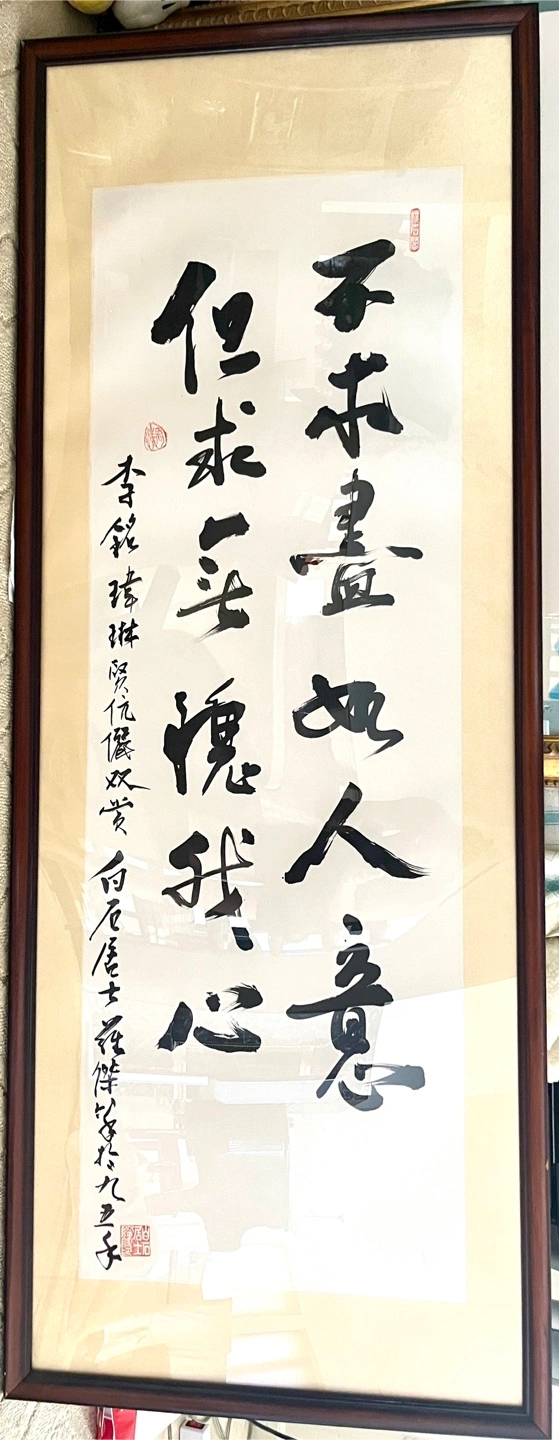 不求盡如人意
但求無愧我心
李銘瑋琳賢伉儷双赏 白石居士羅傑筆於九五年
白石居士